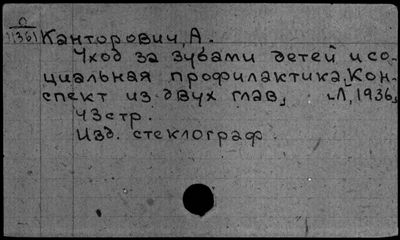 П
11361
Канторович, А.
Уход за зубами детей и со-
циальная профилактика, Кон-
спект из двух глав, Л, 1936,
43стр.
Изд. стеклограф.